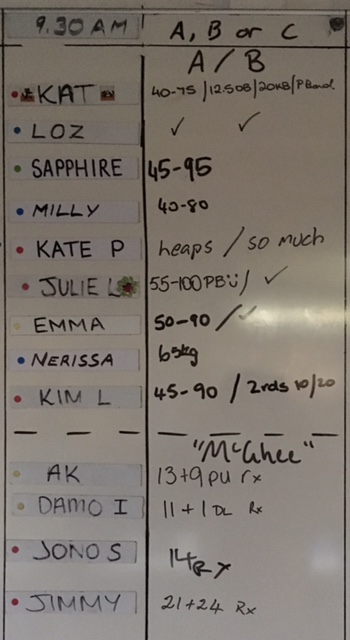 9.30 AM A, B or C
A / B
KAT 40-75 / 12.5DB / 20KB / P Band
LOZ ✓ ✓
SAPPHIRE 45-95
MILLY 40-80
KATE P heaps / so much
JULIE L 55-100PB / ✓
EMMA 50-90 / ✓
NERISSA 65kg
KIM L 45-90 / 2rds 10/20
"McGhee"
AK 13+9pu rx
DAMO I 11+1 DL Rx
JONO S 14 Rx
JIMMY 21+24 Rx